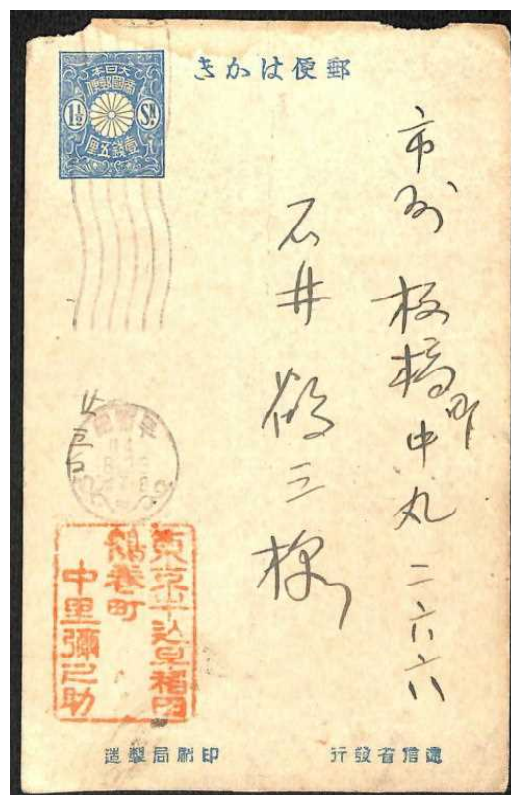 郵便はかき
大日本
帝國郵便
1½ Sn.
壹錢五厘
市外 板橋町中丸二六六
石井鶴三様
廿五日
東京牛込早稲田
鶴巻町
中里彌之助
遞信省發行
印刷局製造